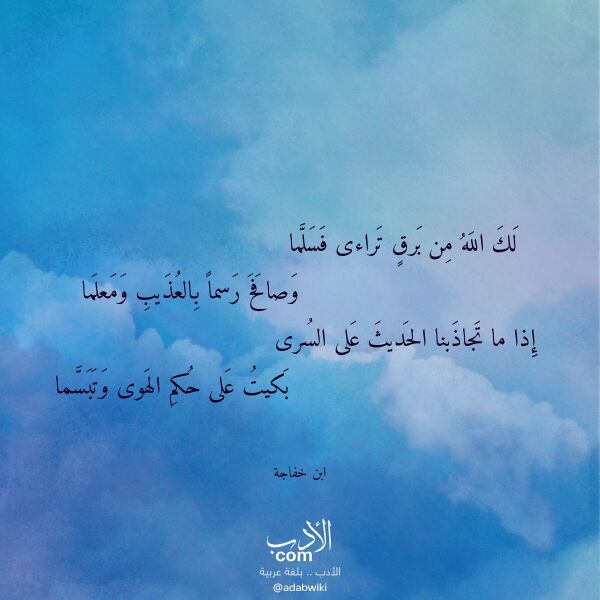 لَكَ اللَهُ مِن بَرقٍ تَراءى فَسَلَّما
وَصافَحَ رَسماً بِالعُذَيبِ وَمَعلَما
إِذا ما تَجاذَبنا الحَديثَ عَلى السُرى
بَكيتُ عَلى حُكمِ الهَوى وَتَبَسَّما
ابن خفاجة
الأدب
com
الأدب .. بلغة عربية
@adabwiki